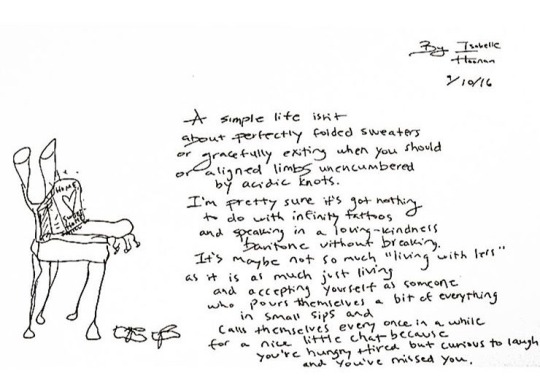 By Isabelle
Hoonan
9/10/16
A simple life isn't
about perfectly folded sweaters
or gracefully exiting when you should
or aligned limbs unencumbered
by acidic knots.
I'm pretty sure it's got nothing
to do with infinity tattoos
and speaking in a loving-kindness
baritone without breaking.
It's maybe not so much "living with less"
as it is as much just living
and accepting yourself as someone
who pours themselves a bit of everything
in small sips and
calls themselves every once in a while
for a nice little chat because
you're hungry + tired but curious to laugh
and you've missed you.
HOME
SWEET
HOME